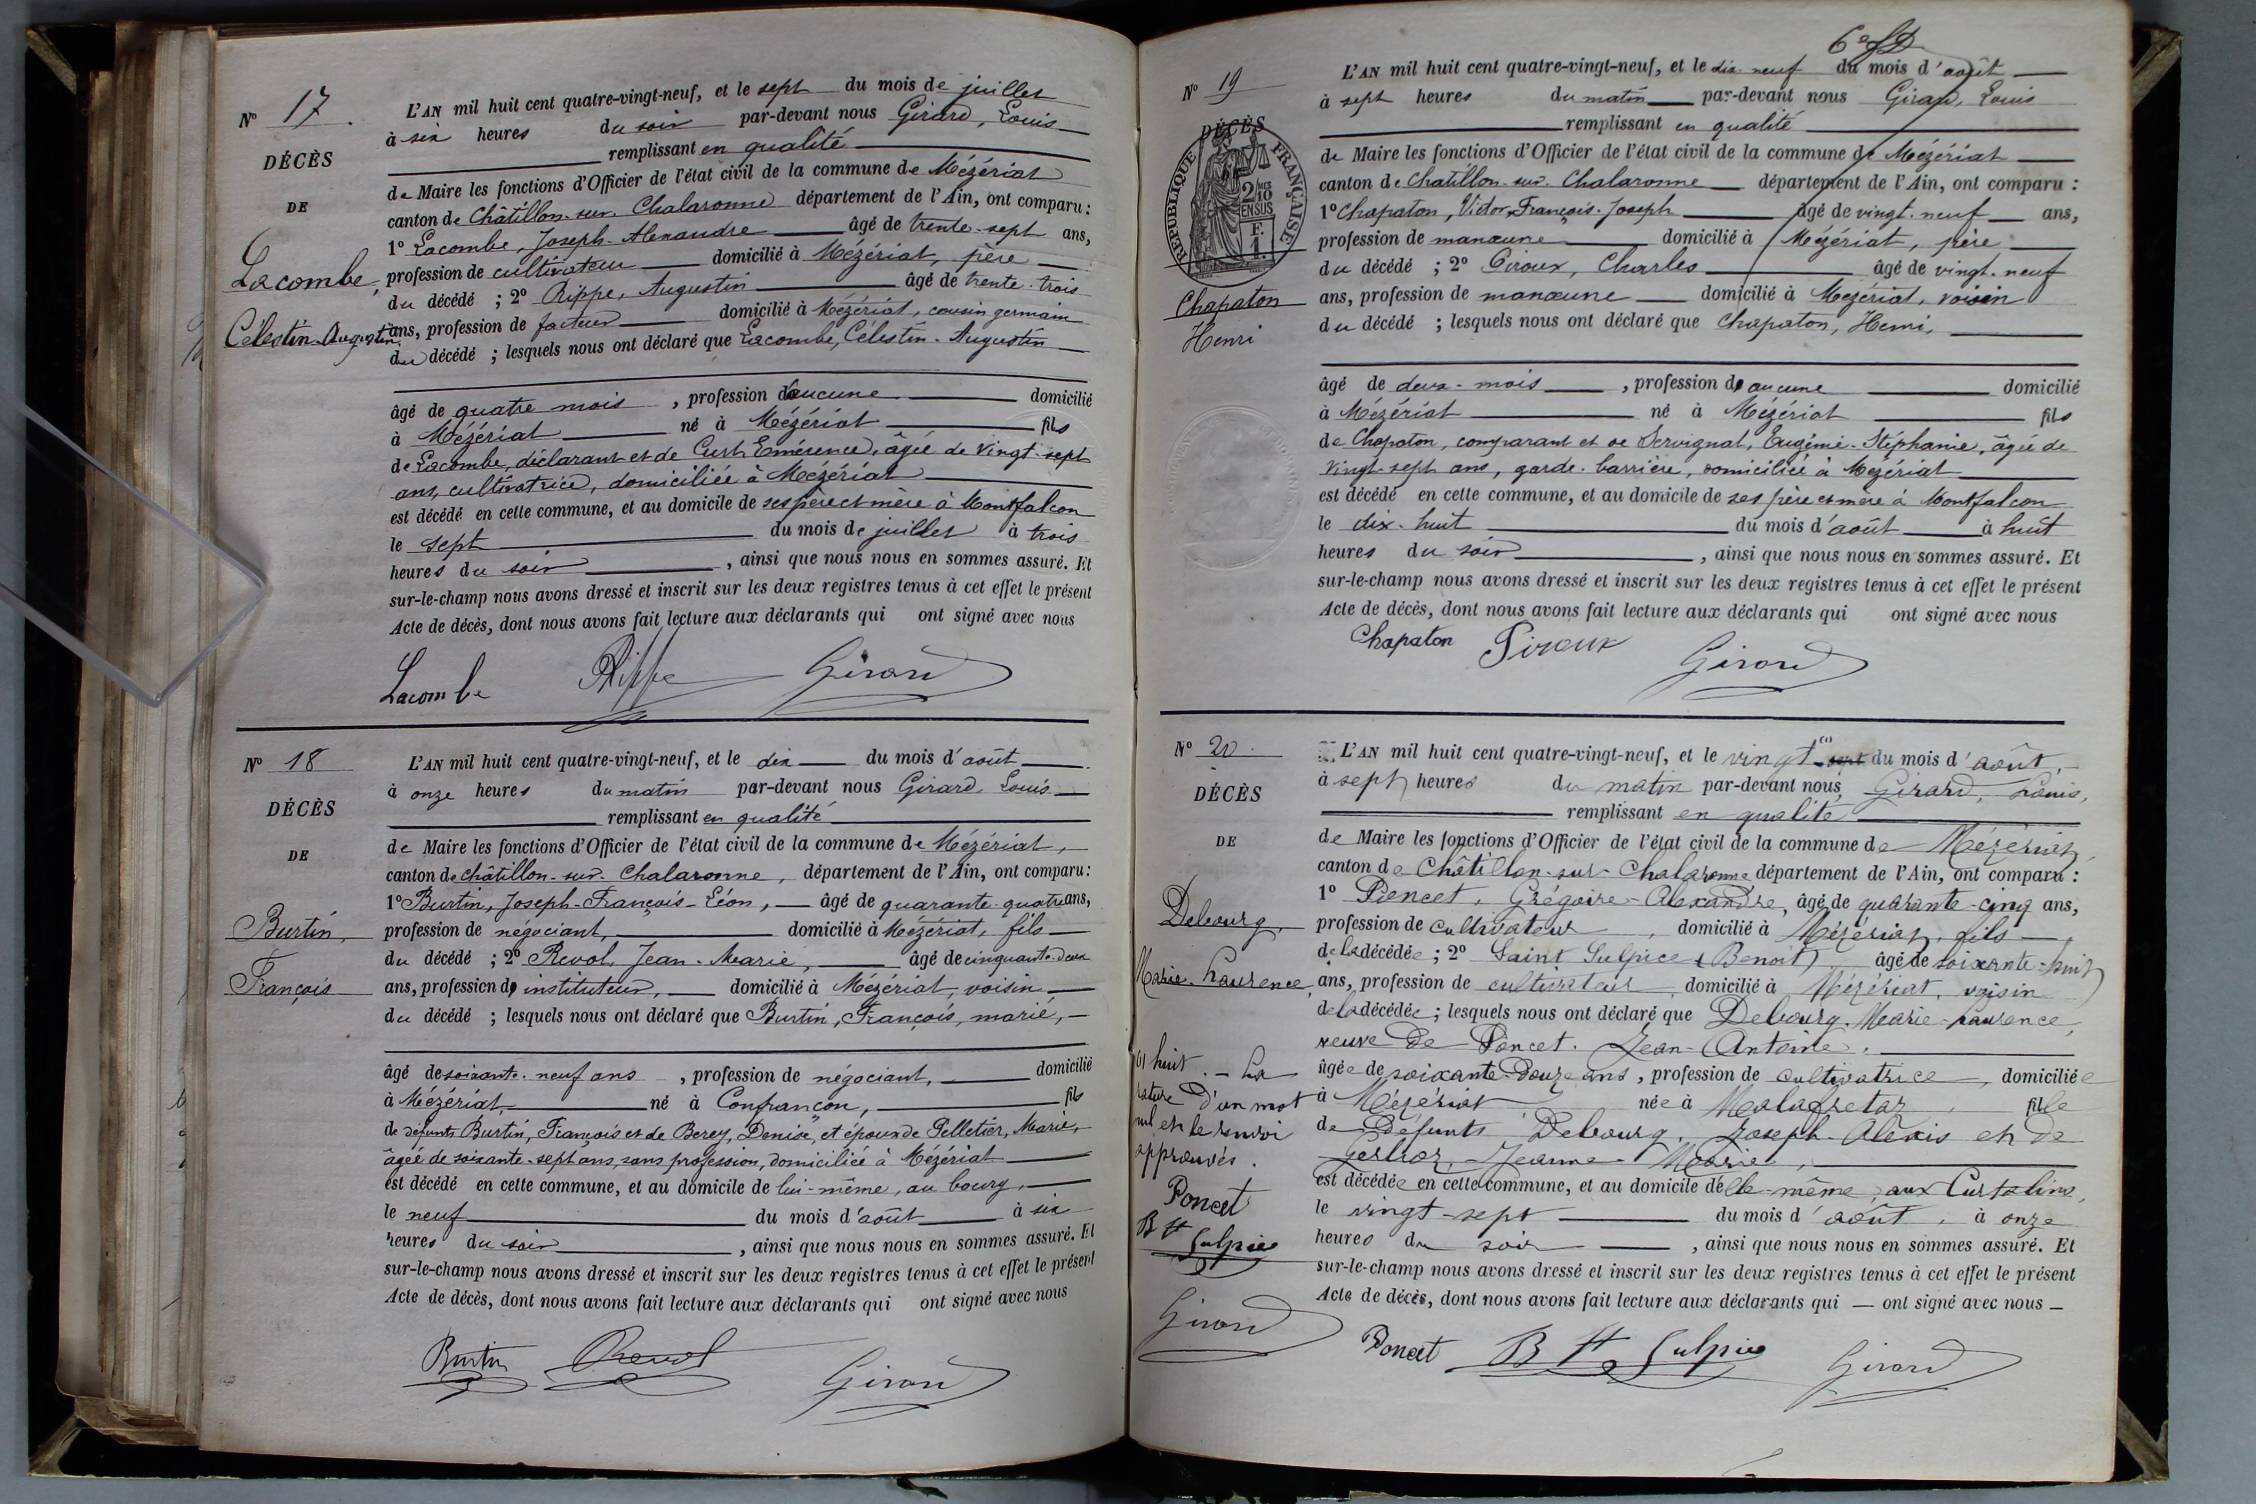 N° 17.
DÉCÈS
DE
Lacombe,
Célestin-Augustin
L'AN mil huit cent quatre-vingt-neuf, et le sept du mois de juillet
à six heures du soir par-devant nous Girard, Louis
remplissant en qualité
de Maire les fonctions d'Officier de l'état civil de la commune de Mézériat
canton de Châtillon-sur-Chalaronne département de l'Ain, ont comparu :
1° Lacombe, Joseph-Alexandre âgé de trente-sept ans,
profession de cultivateur domicilié à Mézériat, père
du décédé ; 2° Rippe, Augustin âgé de trente-trois
ans, profession de facteur domicilié à Mézériat, cousin germain
du décédé ; lesquels nous ont déclaré que Lacombe, Célestin-Augustin
âgé de quatre mois, profession d'aucune domicilié
à Mézériat né à Mézériat fils
de Lacombe, déclarant et de Curt Emérence, âgée de vingt-sept
ans, cultivatrice, domiciliée à Mézériat
est décédé en cette commune, et au domicile de ses père et mère à Montfalcon
le sept du mois de juillet à trois
heures du soir, ainsi que nous nous en sommes assuré. Et
sur-le-champ nous avons dressé et inscrit sur les deux registres tenus à cet effet le présent
Acte de décès, dont nous avons fait lecture aux déclarants qui ont signé avec nous
Lacombe Rippe Girard
N° 18
DÉCÈS
DE
Burtin,
François
L'AN mil huit cent quatre-vingt-neuf, et le dix du mois d'août
à onze heures du matin par-devant nous Girard, Louis
remplissant en qualité
de Maire les fonctions d'Officier de l'état civil de la commune de Mézériat,
canton de Châtillon-sur-Chalaronne, département de l'Ain, ont comparu :
1° Burtin, Joseph-François-Léon, âgé de quarante-quatre ans,
profession de négociant, domicilié à Mézériat, fils
du décédé ; 2° Revol, Jean-Marie, âgé de cinquante-deux
ans, profession d'instituteur, domicilié à Mézériat, voisin
du décédé ; lesquels nous ont déclaré que Burtin, François, marié,
âgé de soixante-neuf ans, profession de négociant, domicilié
à Mézériat, né à Confrançon, fils
de défunts Burtin, François et de Berey, Denise, et époux de Pelletier, Marie,
âgée de soixante-sept ans, sans profession, domiciliée à Mézériat
est décédé en cette commune, et au domicile de lui-même, au bourg,
le neuf du mois d'août à six
heures du soir, ainsi que nous nous en sommes assuré. Et
sur-le-champ nous avons dressé et inscrit sur les deux registres tenus à cet effet le présent
Acte de décès, dont nous avons fait lecture aux déclarants qui ont signé avec nous
Burtin Revol Girard
N° 19
DÉCÈS
RÉPUBLIQUE FRANÇAISE
2/10 EN SUS
F. 1.
Chapaton
Henri
L'AN mil huit cent quatre-vingt-neuf, et le dix-neuf du mois d'août
à sept heures du matin par-devant nous Girard, Louis
remplissant en qualité
de Maire les fonctions d'Officier de l'état civil de la commune de Mézériat
canton de Châtillon-sur-Chalaronne département de l'Ain, ont comparu :
1° Chapaton, Victor, François-Joseph âgé de vingt-neuf ans,
profession de manœuvre domicilié à Mézériat, père
du décédé ; 2° Piroux, Charles âgé de vingt-neuf
ans, profession de manœuvre domicilié à Mézériat, voisin
du décédé ; lesquels nous ont déclaré que Chapaton, Henri,
âgé de deux-mois, profession d'aucune domicilié
à Mézériat né à Mézériat fils
de Chapaton, comparant et de Servignat, Eugénie-Stéphanie, âgée de
vingt-sept ans, garde-barrière, domiciliée à Mézériat
est décédé en cette commune, et au domicile de ses père et mère à Montfalcon
le dix-huit du mois d'août à huit
heures du soir, ainsi que nous nous en sommes assuré. Et
sur-le-champ nous avons dressé et inscrit sur les deux registres tenus à cet effet le présent
Acte de décès, dont nous avons fait lecture aux déclarants qui ont signé avec nous
Chapaton Piroux Girard
N° 20.
DÉCÈS
DE
Debourg,
Marie-Laurence,
(1) huit. - La
rature d'un mot
nul et le renvoi
approuvés.
Poncet
B St Sulpice
Girard
L'AN mil huit cent quatre-vingt-neuf, et le vingt-sept (1) du mois d'août,
à sept heures du matin par-devant nous, Girard, Louis,
remplissant en qualité
de Maire les fonctions d'Officier de l'état civil de la commune de Mézériat,
canton de Châtillon-sur-Chalaronne département de l'Ain, ont comparu :
1° Poncet, Grégoire-Alexandre, âgé de quarante-cinq ans,
profession de cultivateur, domicilié à Mézériat, fils
de la décédée ; 2° Saint Sulpice, Benoît, âgé de soixante-huit
ans, profession de cultivateur, domicilié à Mézériat, voisin
de la décédée ; lesquels nous ont déclaré que Debourg, Marie-Laurence,
veuve de Poncet, Jean-Antoine,
âgée de soixante-douze ans, profession de cultivatrice, domiciliée
à Mézériat née à Malafretaz, fille
de défunts Debourg, Joseph-Alexis et de
Jeanne-Marie,
est décédée en cette commune, et au domicile d'elle-même, aux Curtelins,
le vingt-sept du mois d'août, à onze
heures du soir, ainsi que nous nous en sommes assuré. Et
sur-le-champ nous avons dressé et inscrit sur les deux registres tenus à cet effet le présent
Acte de décès, dont nous avons fait lecture aux déclarants qui — ont signé avec nous —
Poncet B St Sulpice Girard